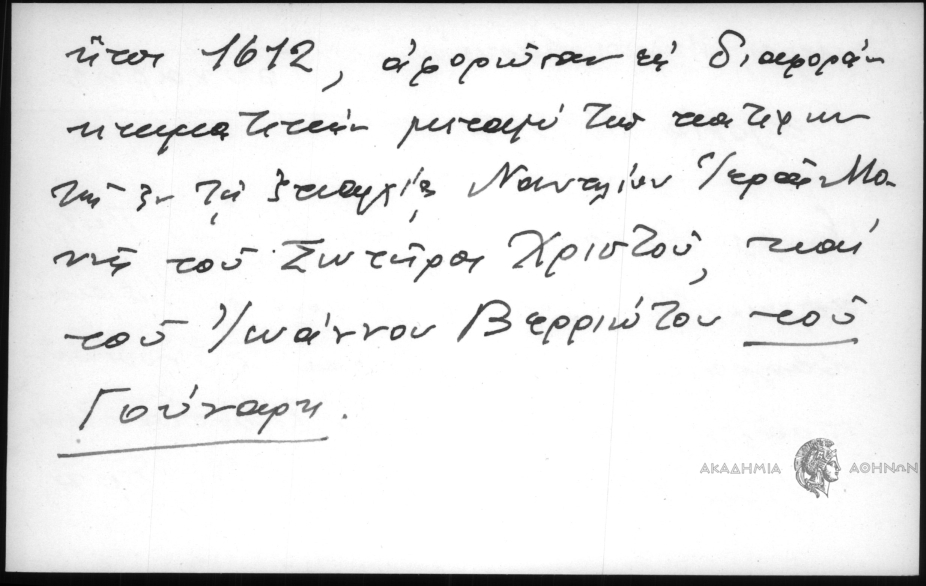 ἤτοι 1612, ἀφορῶσαν εἰς διαφορὰν
κτηματικὴν μεταξὺ τοῦ κατέχων
τῆς ἐν τῇ ἐπαρχίᾳ Ναυπλίου Ἱερᾶς Μο-
νῆς τοῦ Σωτῆρος Χριστοῦ, καὶ
τοῦ Ἰωάννου Βερριώτου τοῦ
Γούναρη.
ΑΚΑΔΗΜΙΑ ΑΘΗΝΩΝ